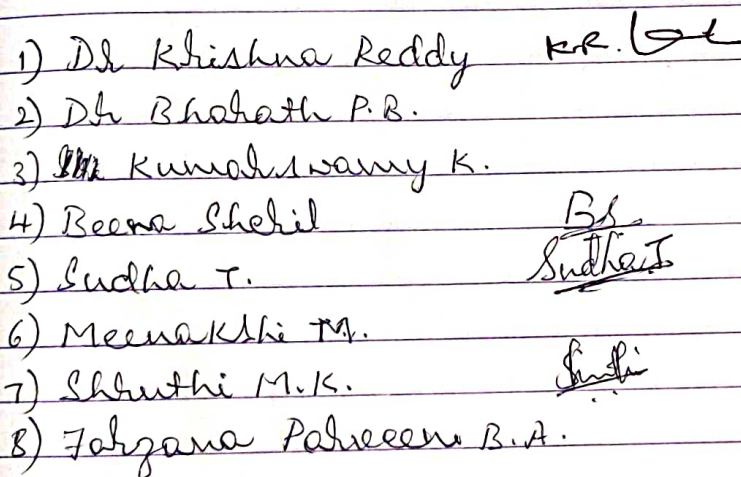 1) Dr Krishna Reddy K.R.
2) Dr Bharath P.B.
3) Kumarswamy K.
4) Beena Sheril BS
5) Sudha T. Sudha T
6) Meenakshi M.
7) Shruthi M.K.
8) Farzana Parveen B.A.